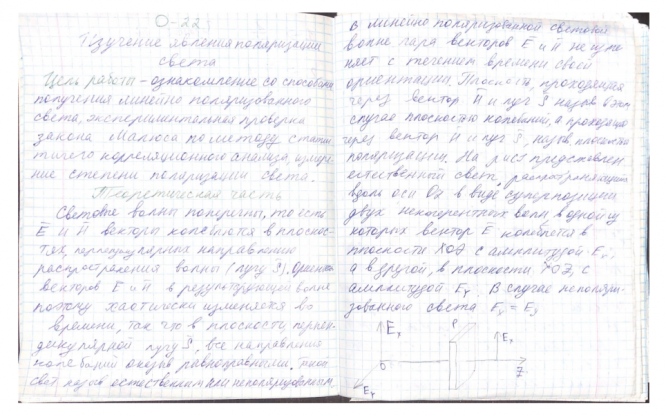 О-22
Изучение явления поляризации
света
Цель работы - ознакомление со способами
получения линейно поляризованного
света, экспериментальная проверка
закона Малюса по методу статис
тичего корреляционного анализа, измере
ние степени поляризации света.
Теоретическая часть
Световые волны поперечны, то есть
E и H векторы колеблются в плоскос-
тях, перпендикулярных направлению
распространения волны (лучу S).
векторов E и H в результирующей волне
поэтому хаотически изменяется во
времени, так что в плоскости перпен-
дикулярной лучу S, все направления
колебаний равноправными. Такой
свет назыв естественным или неполяризованным.
В линейно поляризованной световой
волне пара векторов E и H не изме
няет с течением времени своей
ориентации. Плоскость, проходящая
через вектор H и луч S назыв в этом
случае плоскостью колебаний, а проходящая
через вектор H и луч S, назыв плоскостью
поляризации. На рис1 представлен
естественный свет, распространяющийся
вдоль оси Oz в виде суперпозиции
двух некогерентных волн в одной из
которых вектор E колеблется в
плоскости XOZ с амплитудой Eₓ,
а в другой, в плоскости YOZ, с
амплитудой Eᵧ. В случае неполяри-
зованного света
Eₓ P Eₓ
O Z
Eᵧ